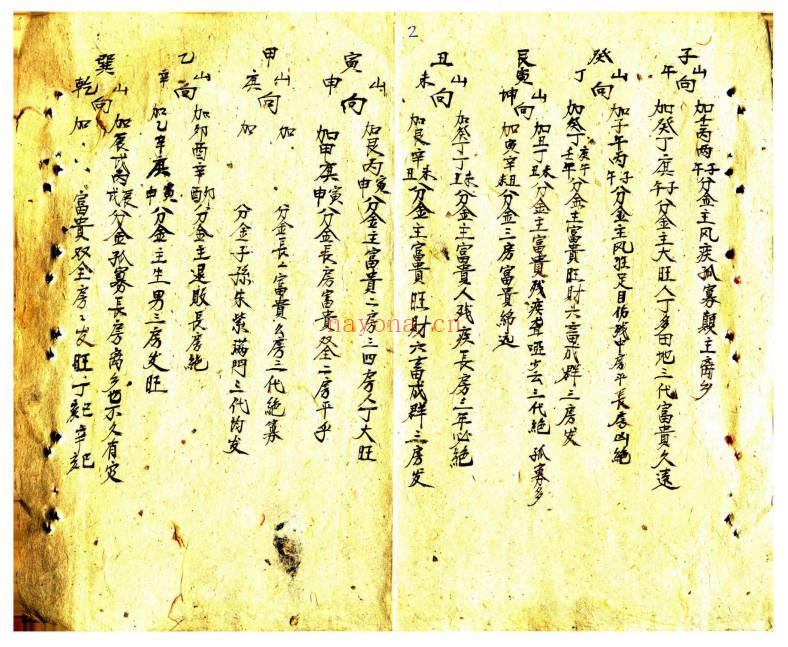 2
子山午向
加壬丙丙子午分金主风疾孤寡顛主离乡
加癸丁庚子午分金主大旺人丁多田地三代富貴久遠
癸山丁向
加子午丙子午分金主风狂足目伤残中房平長房凶絕
加癸丁庚午壬午分金主富貴旺財六畜成群三房发
艮山坤向
加丑丁丑未分金主富貴残疾聋哑少亡三代絕孤寡多
加寅辛丑未分金三房富貴綿远
丑山未向
加癸丁丁丑未分金主富貴人残疾長房三年必絕
加艮辛丑未分金主富貴旺財六畜成群三房发
寅山申向
加艮丙寅申分金主富貴二房三四房人丁大旺
加甲庚寅申分金長房富貴双全二房平乎
甲山庚向
加 分金長二富貴么房三代絕寡
加 分金子孫朱紫滿門三代均发
乙山辛向
加卯酉辛卯酉分金主退敗長房絕
加乙辛庚寅申分金主生男三房发旺
巽山乾向
加辰戌丙辰戌分金孤寡長房离乡也不久有定
加 富貴双全房々发旺
nayona.cn